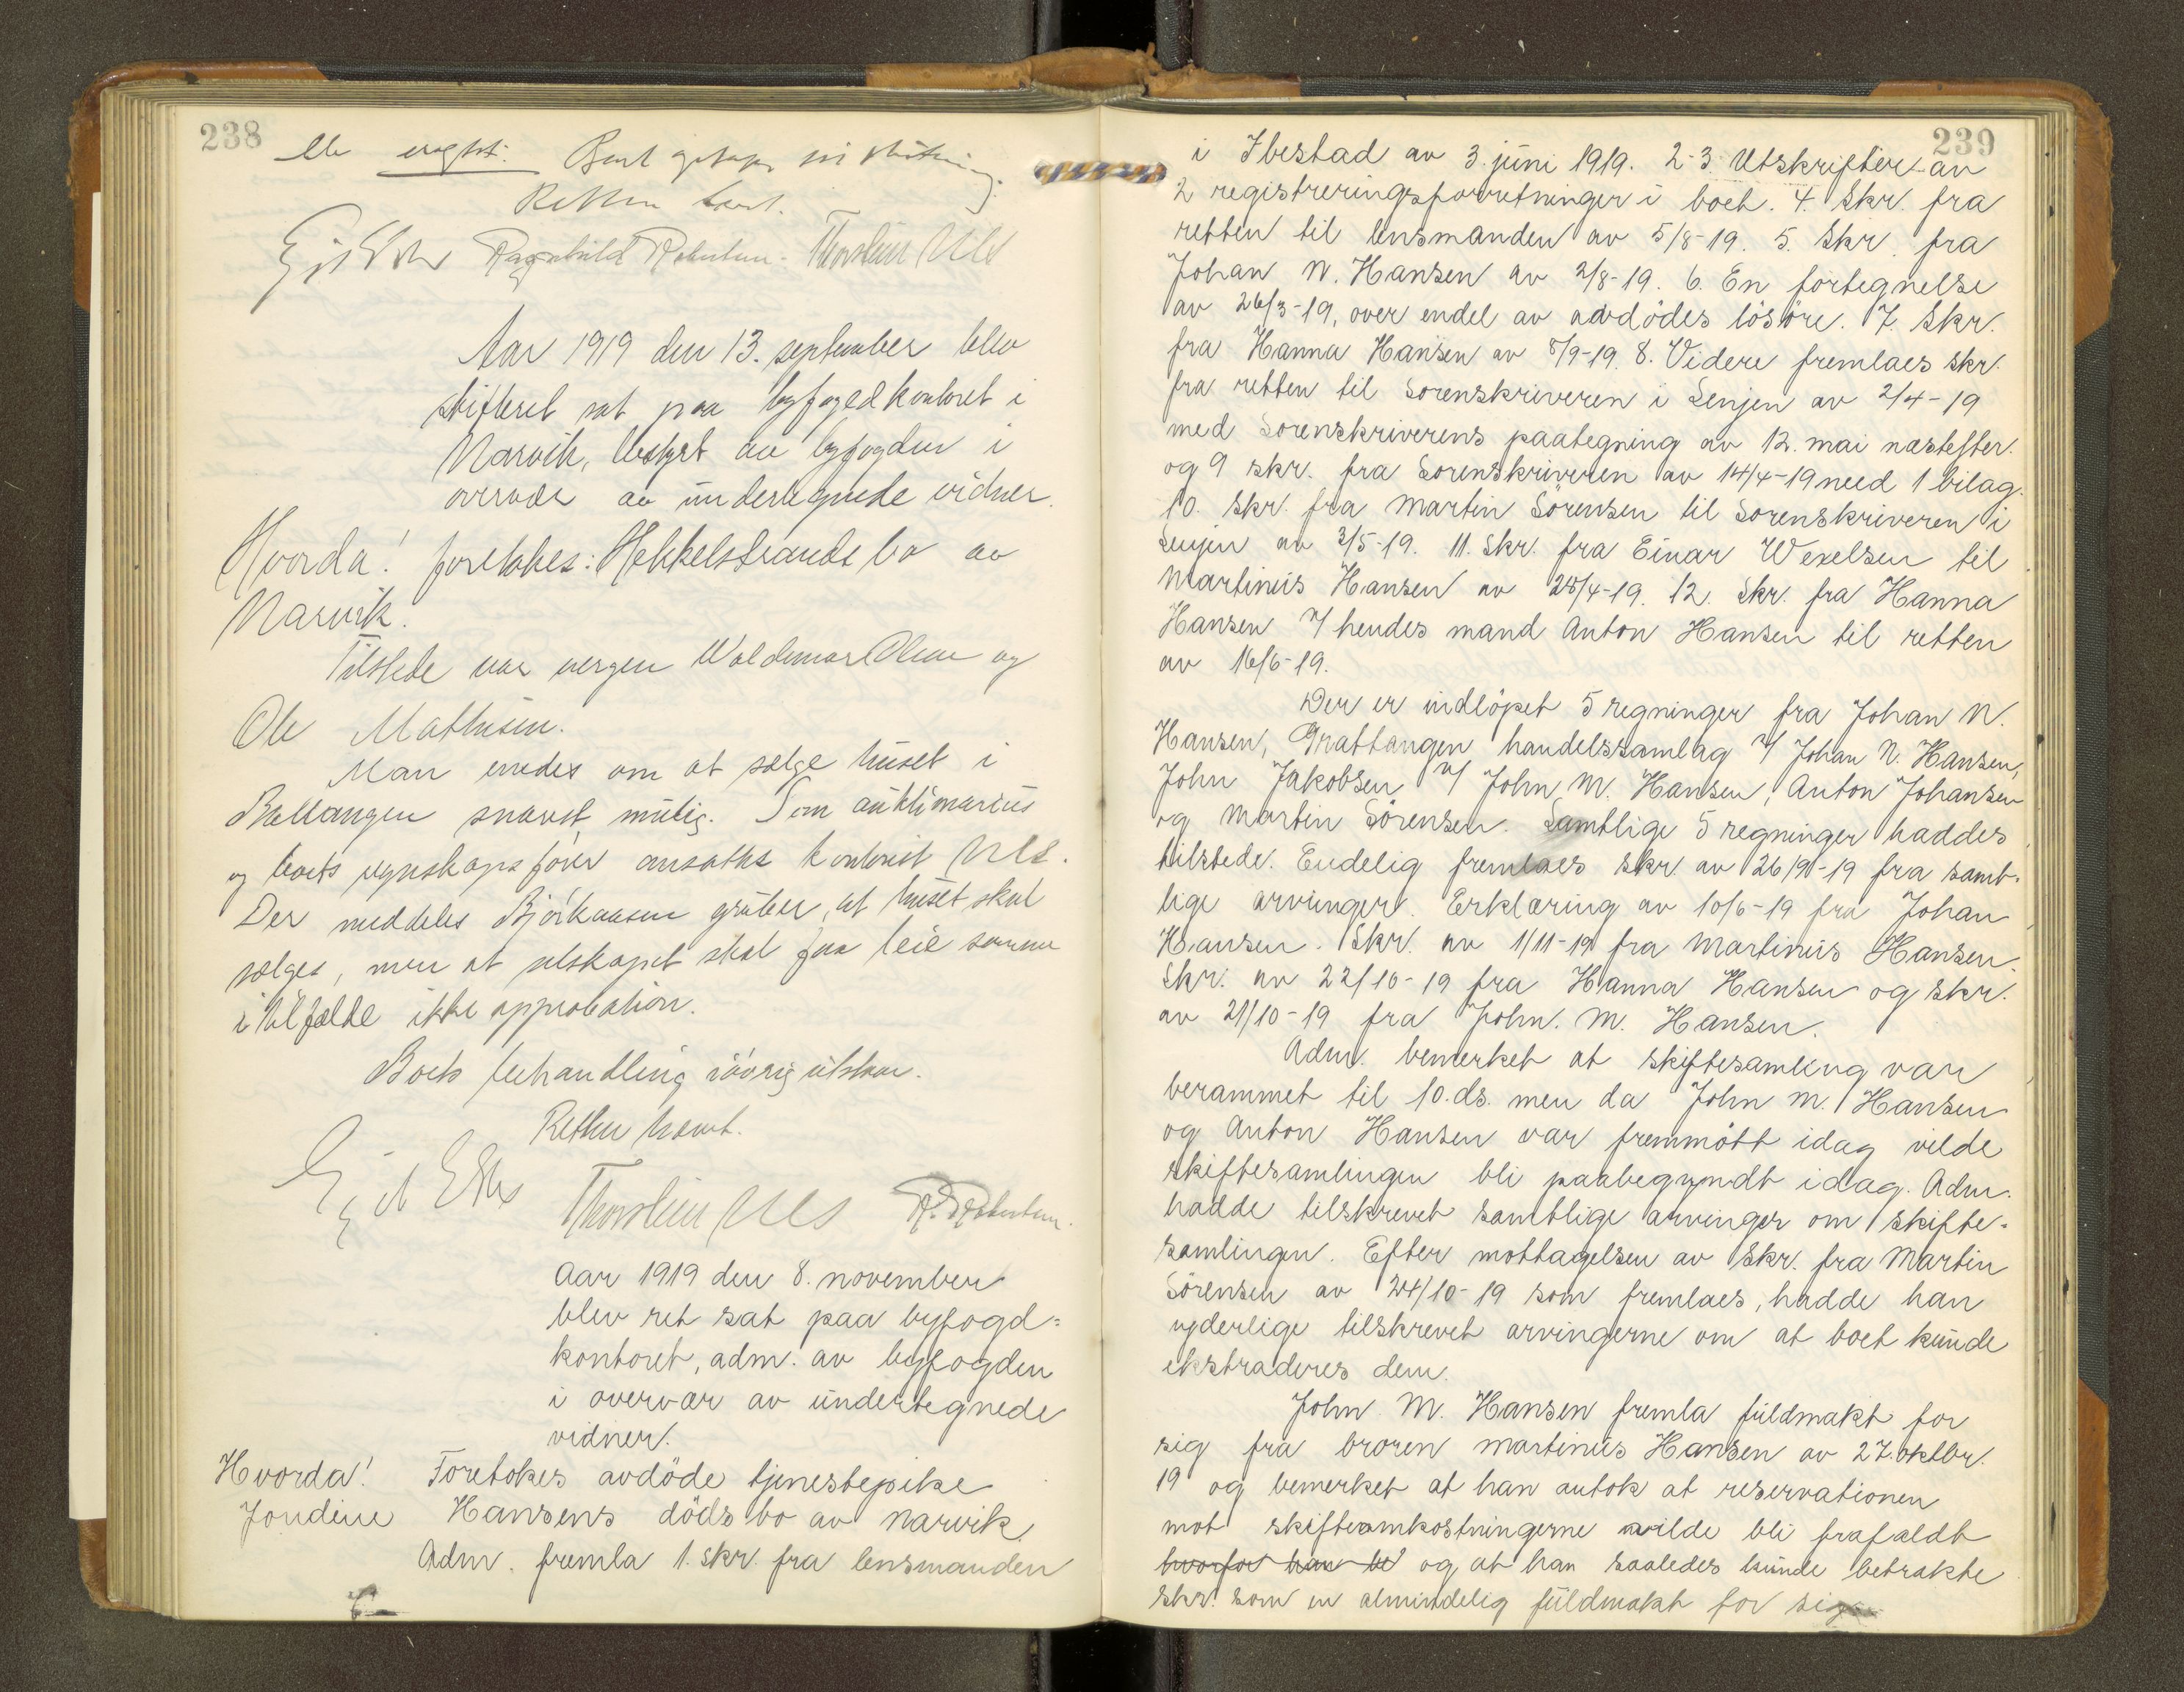 238
Retten hævt.
Ragnhild Thorstein Nils
Aar 1919 den 13. september blev
skifteret sat paa byfogedkontoret i
Narvik, bestyrt av byfogden i
overvær av undertegnede vidner.
Hvorda! foretokes: Hekkelstrands bo av
Narvik.
Tilstede var vergen Waldemar Olsen og
Ole Mathisen.
Man enedes om at sælge huset i
Ballangen snarest mulig. Som auktionarius
og boets regnskapsfører ansattes kontorist Nils.
Der meddeles Bjørkaasen gruber, at huset skal
sælges, men at selskapet skal faa leie samme
i tilfælde ikke approbation.
Boets behandling iøvrig utstaar.
Retten hævet.
Thorstein Nils
Aar 1919 den 8. november
blev ret sat paa byfogd=
kontoret, adm. av byfogden
i overvær av undertegnede
vidner.
Hvorda! Foretokes avdöde tjenestepike
Jondine Hansens dödsbo av Narvik.
Adm. fremla 1. skr. fra lensmanden
239
i Ibestad av 3. juni 1919. 2-3. Utskrifter av
2 registreringsforretninger i boet. 4. Skr. fra
retten til lensmanden av 5/8-19. 5. Skr. fra
Johan N. Hansen av 2/8-19. 6. En fortegnelse
av 26/3-19, over endel av avdödes lösöre. 7. Skr.
fra Hanna Hansen av 8/9-19. 8. Videre fremlaes skr.
fra retten til Sorenskriveren i Senjen av 2/4-19
med Sorenskriverens paategning av 12. mai næstefter.
og 9 skr. fra Sorenskriveren av 14/4-19 med 1 bilag.
10. Skr. fra Martin Sörensen til Sorenskriveren i
Senjen av 3/5-19. 11. Skr. fra Einar Wexelsen til
Martinus Hansen av 28/4-19. 12. Skr. fra Hanna
Hansen v/ hendes mand Anton Hansen til retten
av 16/6-19.
Der er indlöpet 5 regninger fra Johan N.
Hansen, Gratangen handelssamlag v/ Johan N. Hansen,
John Jakobsen v/ John M. Hansen, Anton Johansen
og Martin Sörensen. Samtlige 5 regninger haddes
tilstede. Endelig fremlaes skr. av 26/9-19 fra samt=
lige arvinger. Erklæring av 10/6-19 fra Johan
Hansen. Skr. av 1/11-19 fra Martinus Hansen.
Skr. av 22/10-19 fra Hanna Hansen og skr.
av 21/10-19 fra John. M. Hansen.
Adm. bemerket at skiftesamling var
berammet til 10. ds. men da John M. Hansen
og Anton Hansen var fremmött idag vilde
skiftesamlingen bli paabegyndt idag. Adm.
hadde tilskrevet samtlige arvinger om skifte=
samlingen. Efter mottagelsen av Skr. fra Martin
Sörensen av 24/10-19 som fremlaes, hadde han
yderlige tilskrevet arvingerne om at boet kunde
ekstraderes dem.
John M. Hansen fremla fuldmakt for
sig fra broren Martinus Hansen av 27. oktbr.
19 og bemerket at han antok at reservationen
mot skifteomkostningerne vilde bli frafaldt
hvorfor han be og at han saaledes kunde betrakte
skr. som en almindelig fuldmakt for sig